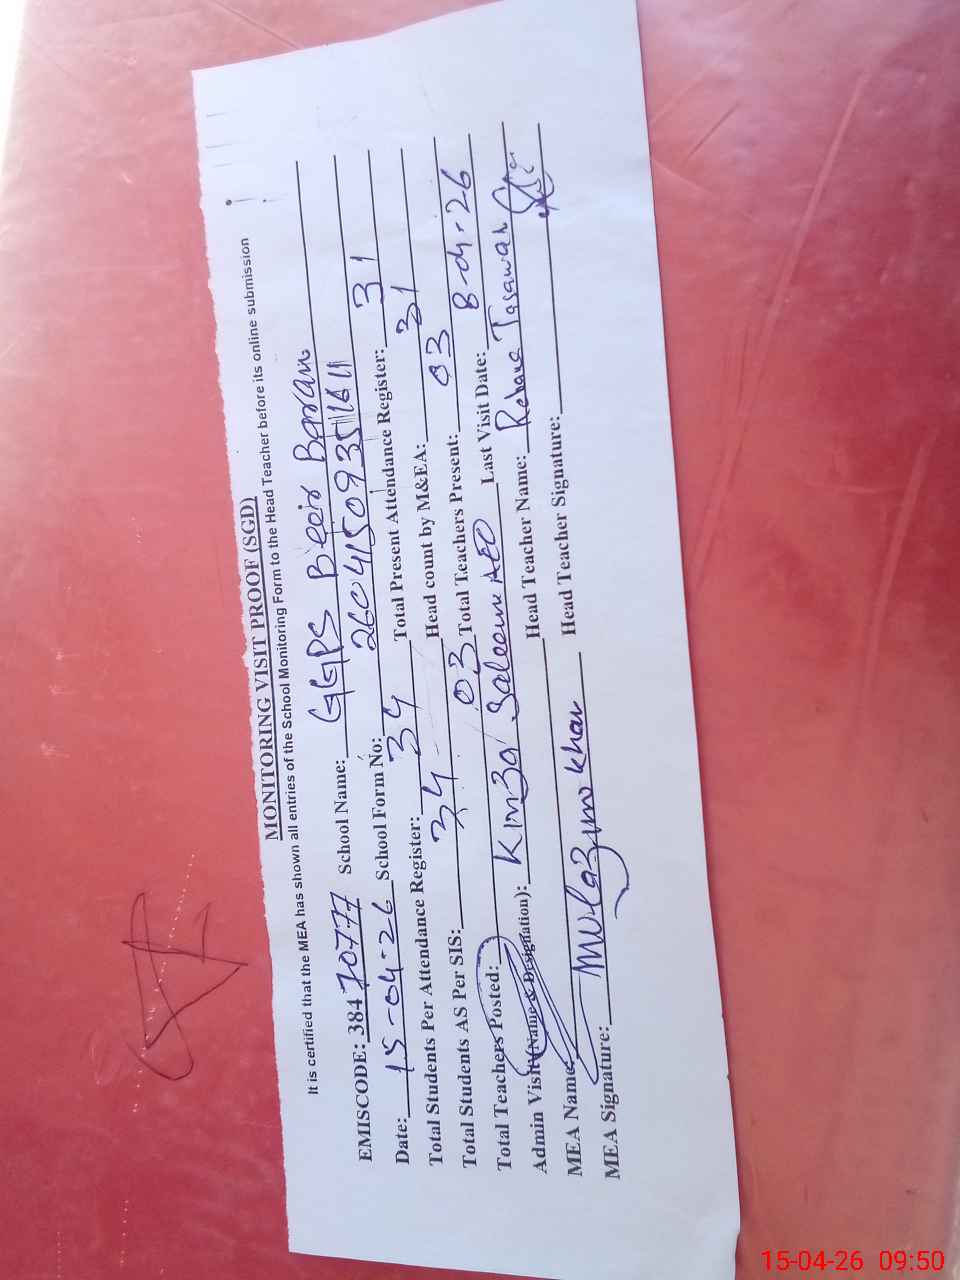 MONITORING VISIT PROOF (SGD)
It is certified that the MEA has shown all entries of the School Monitoring Form to the Head Teacher before its online submission
EMISCODE: 38470777 School Name: GGPS Beer Baran
Date: 15-04-26 School Form No: 26041509351611
Total Students Per Attendance Register: 34 Total Present Attendance Register: 31
Total Students AS Per SIS: 34 Head count by M&EA: 31
Total Teachers Posted: 03 Total Teachers Present: 03
Admin Visit(Name & Designation): Kinza Saleem AEO Last Visit Date: 8-04-26
MEA Name: Mulazim Khan Head Teacher Name: Rehana Tasawar
MEA Signature: Head Teacher Signature:
15-04-26 09:50